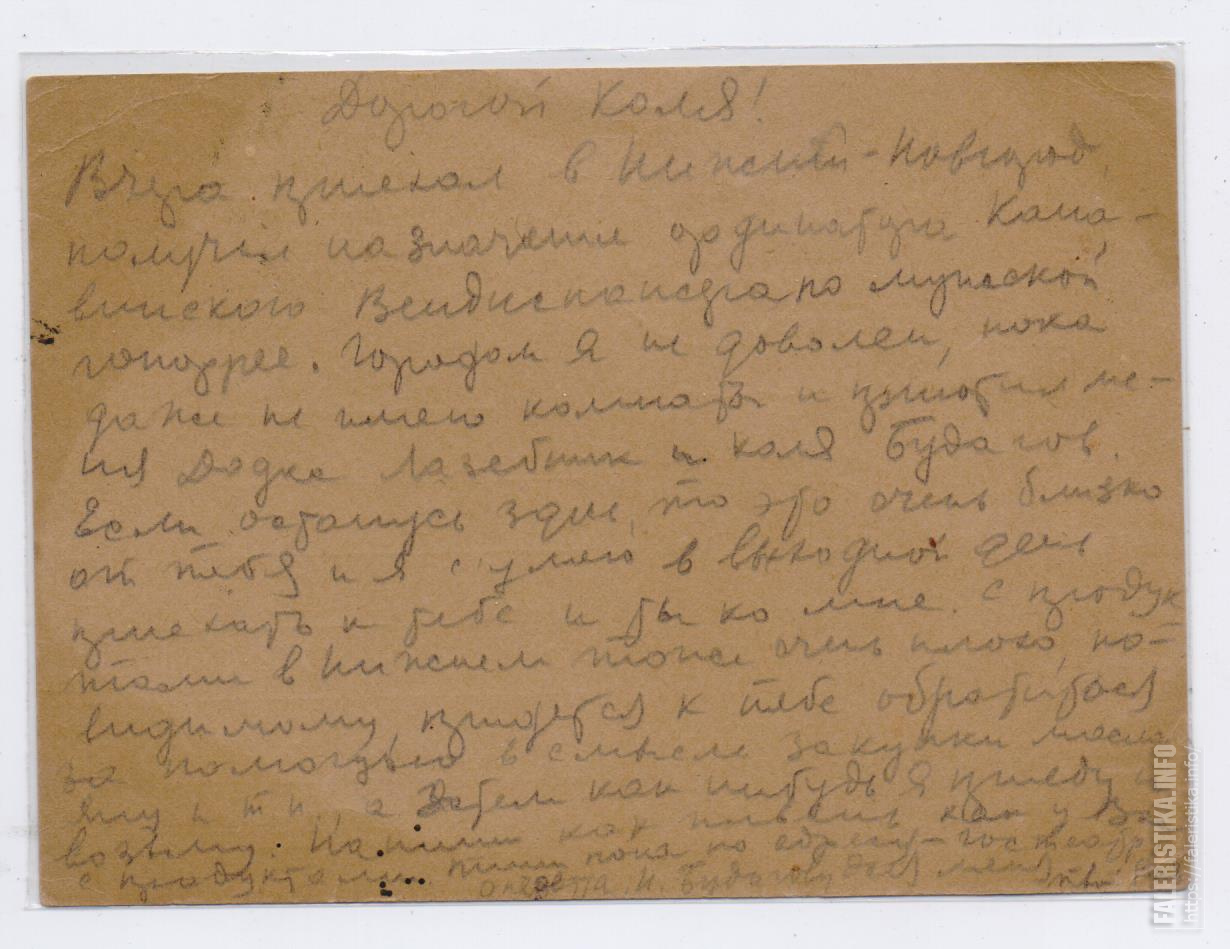 Дорогой Коля!
Вчера приехал в Нижний-Новгород,
получил назначение ординатура Кана-
винского Вендиспансера по мужской
гоноррее. Городом я не доволен, пока
даже не имею комнаты и приютил ме-
ня Додка Лазебник и Коля Будагов.
Если останусь здесь, то это очень близко
от тебя и я сумею в выходной день
приехать к тебе и ты ко мне. С продук
тами в Нижнем тоже очень плохо, по-
видимому, придется к тебе обратиться
за помощью в смысле закупки масла
яиц и т п., а затем как нибудь я приеду и
возьму. Напиши как живешь как у Вас
с продуктами. Пиши пока по адресу - гостеатр
оперетта Н. Будагову для меня
Твой
FALERISTIKA.INFO
https://faleristika.info/